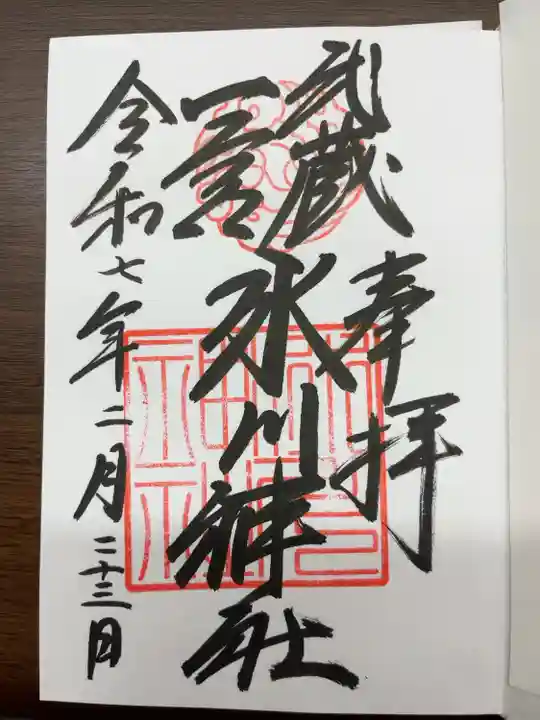 武蔵
一宮
奉拝
氷川神社
令和七年二月二十三日